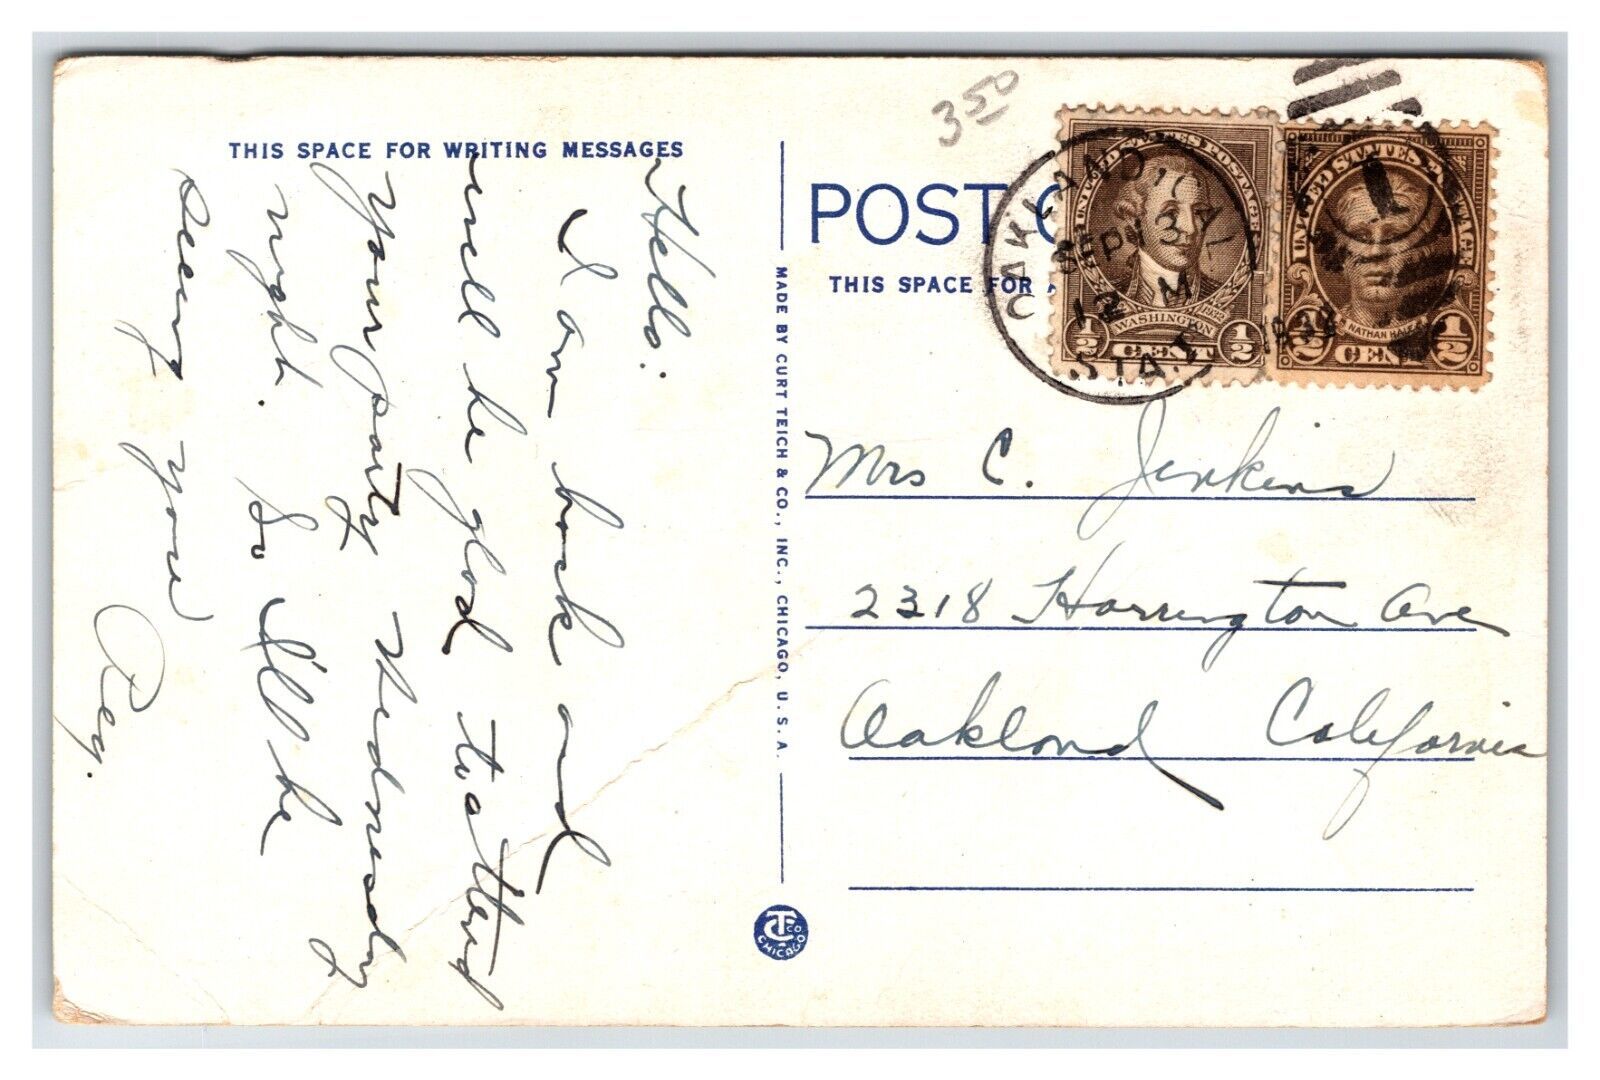 THIS SPACE FOR WRITING MESSAGES
Hello:
I am back and
will be glad to attend
your party Wednesday
night. So I'll be
seeing you
Reg.
MADE BY CURT TEICH & CO., INC., CHICAGO, U.S.A.
CTCO
CHICAGO
3.50
POST C
THIS SPACE FOR A
OAKLAND
SEP 13
12 M
STA.
UNITED STATES POSTAGE
1732
WASHINGTON
1/2 CENT 1/2
1
UNITED STATES POSTAGE
NATHAN HALE
1/2 CENT 1/2
Mrs C. Jenkins
2318 Harrington Ave
Oakland California